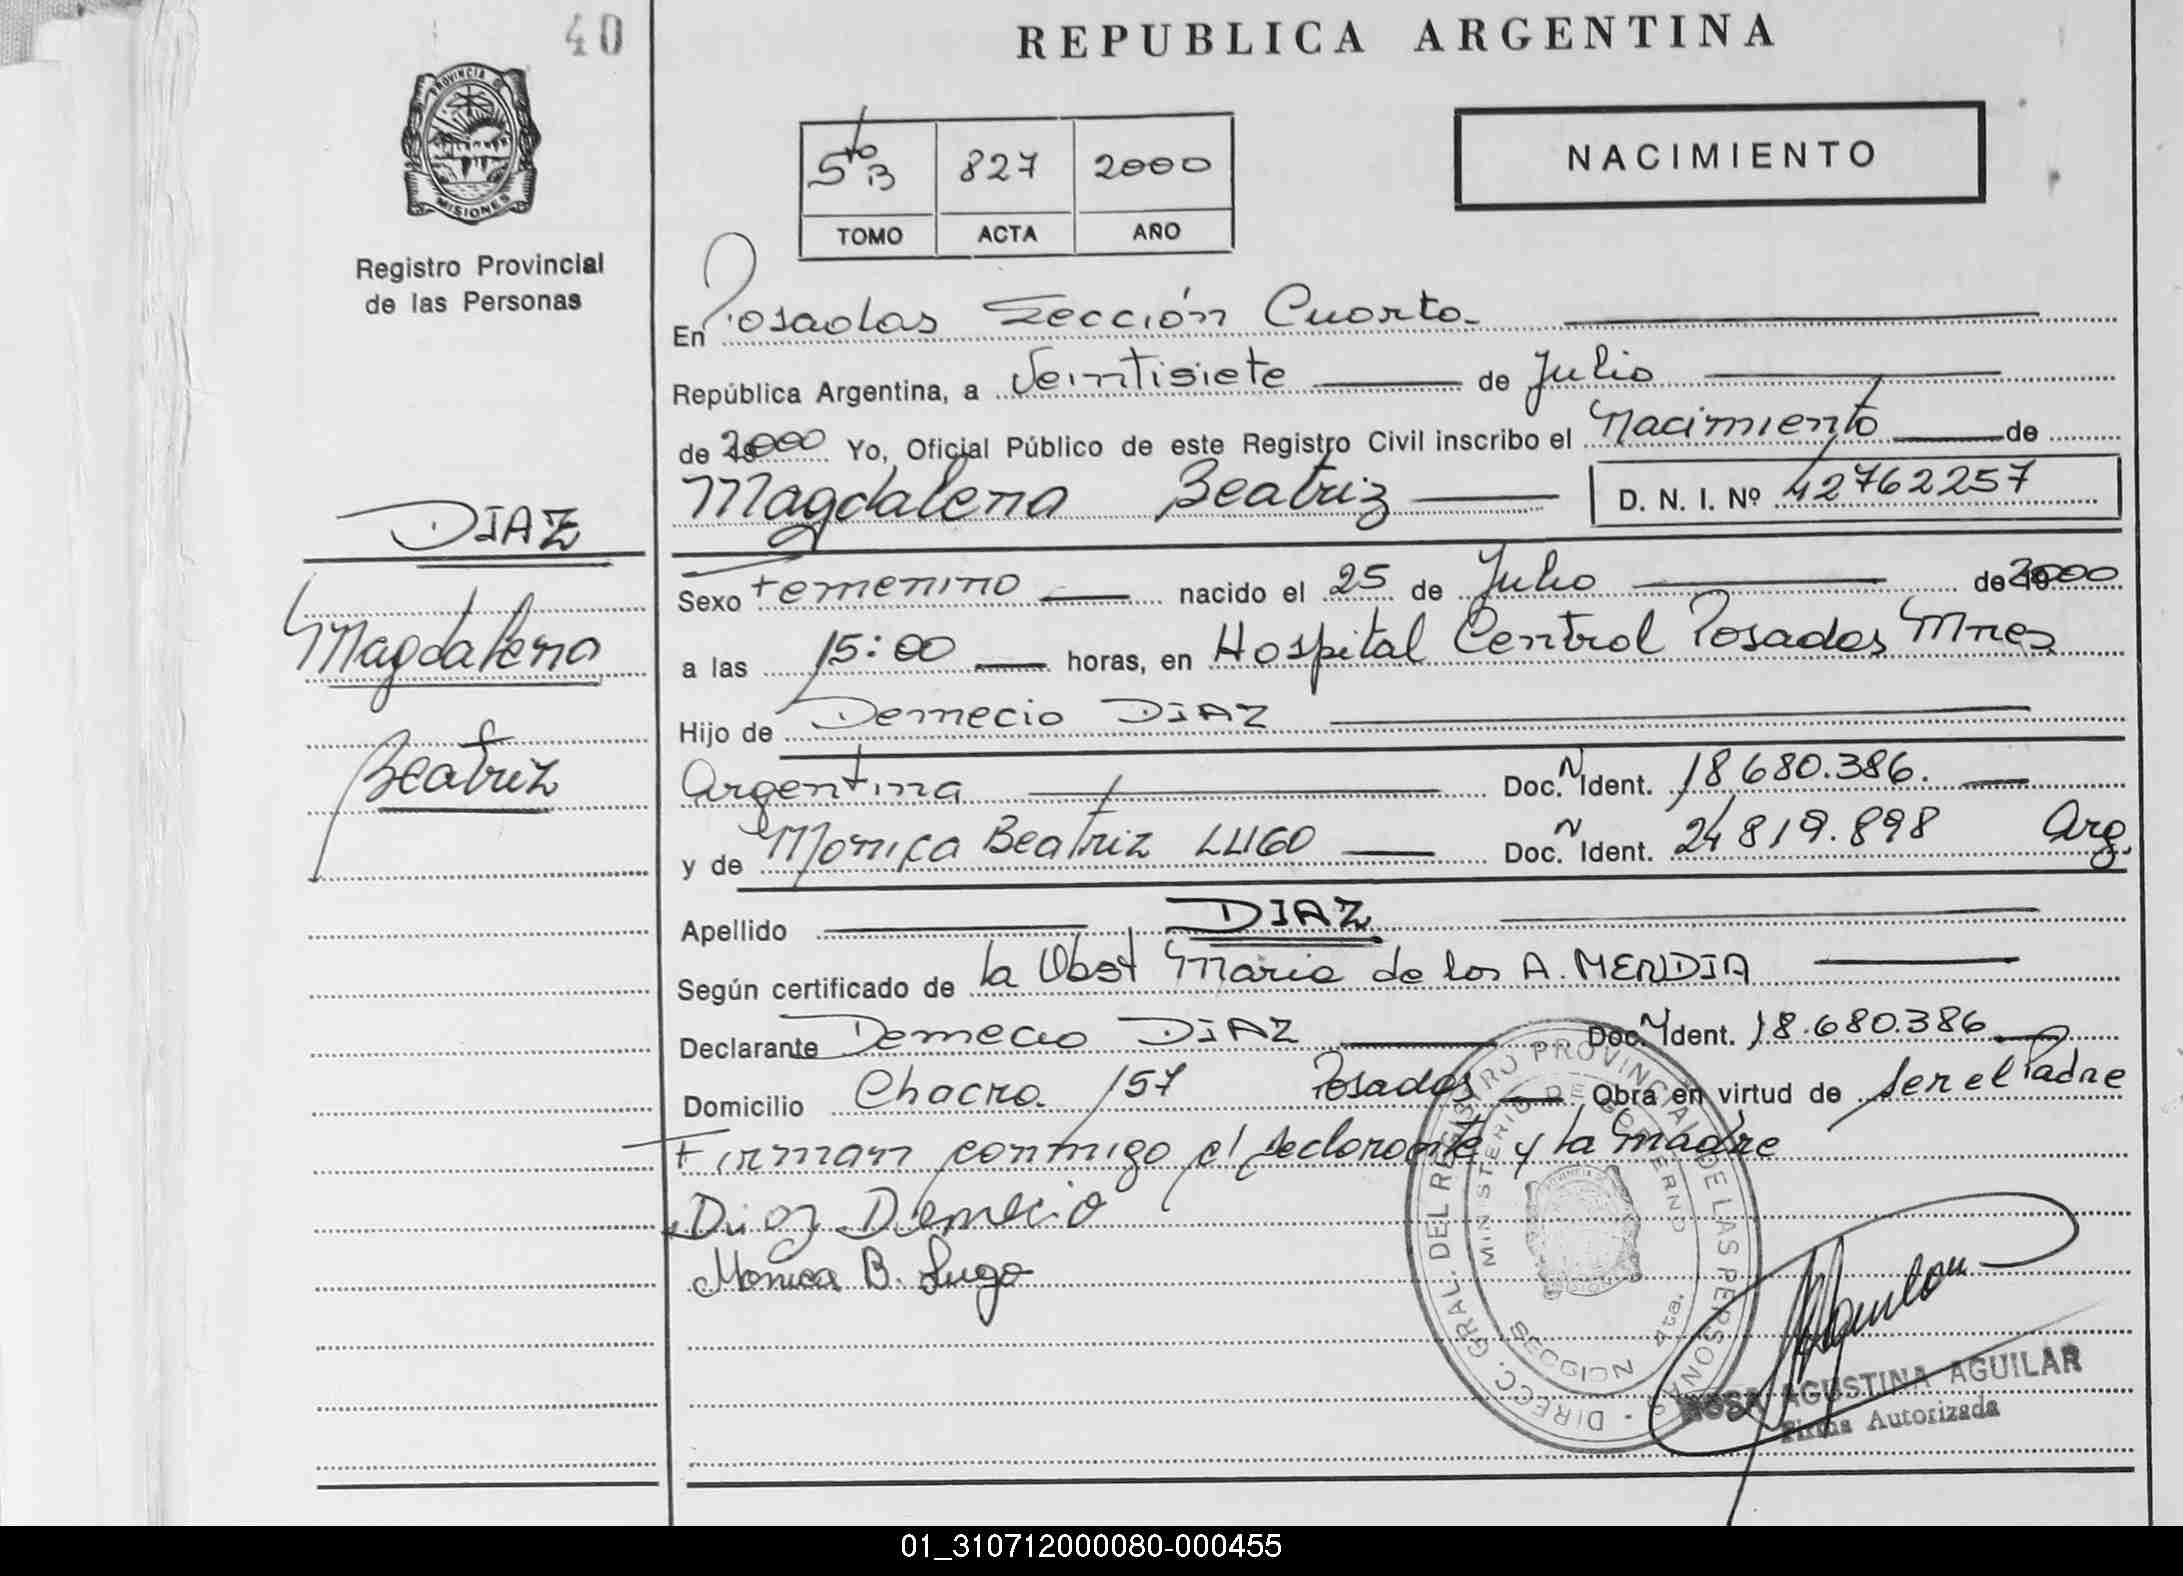 40
REPUBLICA ARGENTINA
PROVINCIA DE MISIONES
5to B 827 2000
TOMO ACTA AÑO
NACIMIENTO
Registro Provincial
de las Personas
En Posadas Sección Cuarta
República Argentina, a Veintisiete de Julio
de 2000 Yo, Oficial Público de este Registro Civil inscribo el Nacimiento de
Magdalena Beatriz D. N. I. Nº 42762257
DIAZ
Magdalena
Beatriz
Sexo Femenino nacido el 25 de Julio de 2000
a las 15:00 horas, en Hospital Central Posadas Mnes
Hijo de Demecio DIAZ
Argentina Doc. N Ident. 18.680.386.
y de Monica Beatriz LUGO Doc. N Ident. 24.819.898 Arg.
Apellido DIAZ
Según certificado de la Obst Maria de los A. MENDIA
Declarante Demecio DIAZ Doc. N Ident. 18.680.386
Domicilio Chacra 157 Posadas Obra en virtud de ser el Padre
Firman conmigo el declarante y la madre
Diaz Demecio
Monica B. Lugo
DIRECC. GRAL. DEL REGISTRO PROVINCIAL DE LAS PERSONAS
MINISTERIO DE GOBIERNO
SECCION 4ta.
ROSA AGUSTINA AGUILAR
Firma Autorizada
01_310712000080-000455